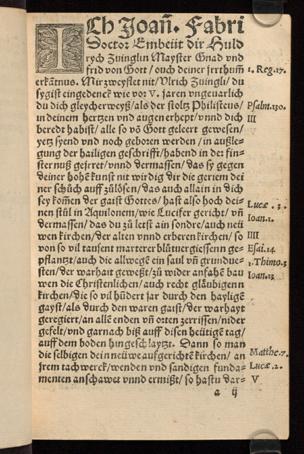 ICh Joañ. Fabri
Doctor Embeüt dir Huld
rych Zwinglin Mayster Gnad vnd
frid von Gott / ouch deiner jrrthuṁ
1. Reg. 17.
erkãtnus. Mir zweyflet nit / Vlrich Zwingli / du
sygist eingedenck wie vor V. jaren vngeuarlich
du dich gleycherweyß / als der stoltz Philisteus /
Psalm. 130.
in deinem hertzen vnd augen erhept / vnnd dich
III
beredt habist / alle so võ Gott geleert gewesen /
yetz syend vnd noch geboren werden / in außle-
gung der hailigen geschrifft / habend in der fin-
ster nuß gefret / vnnd dermassen / das sy gegen
deiner hohẽ kunst nit wirdig dir die geriem dei
ner schůch auff zůlösen / das auch allain in dich
sey kom̃en der gaist Gottes / hast also hoch dei-
Lucæ . 3.
nen stůl in Aquilonem / wie Lucifer gericht / vñ
Ioan. 1.
dermassen / das du zů letst ain sondre / auch neü
wen kirchen / der alten vnd erberen kirchen / so
IIII
von so vil tausent marterer blůtuergiessenn ge-
Esai. 14
pflantzt / auch die allwegẽ ein saul vñ grundue-
1. Thimo. 3
sten / der warhait geweßt / zů wider anfahẽ bau
Ioan. 13
wen die Christenlichen / auch recht gläubigenn
kirchen / die so vil hũdert jar durch den hayligẽ
gayst / als durch den waren gaist / der warhayt
geregiert / an allẽ enden vñ orten zerrissen / nider
gefelt / vnd garnach biß auff disen heütigẽ tag /
auff dem boden hin geschlaytzt. Dann so man
Matthe. 7.
die selbigen dein neüwe aufgerichtẽ kirchen / an
Lucæ . 2.
jrem tachwerck / wenden vnd sandigen funda-
menten anschawet vnnd ermißt / so hastu dar-
V
a ij